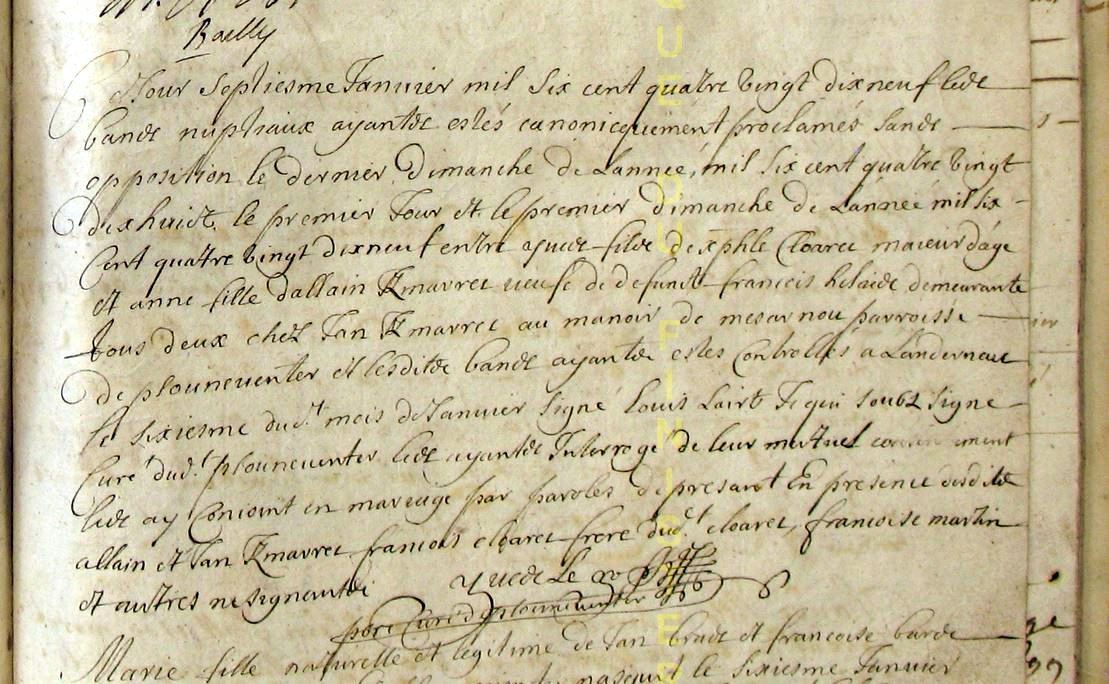 Bailly
Jour septiesme Janvier mil six cent quatre vingt dixneuf les
bands nuptiaux ayants estés canonicquement proclamés sands
opposition le dernier dimanche de Lannee, mil six cent quatre vingt
dixhuict, le premier Jour et le premier dimanche de Lannée mil six
Cent quatre vingt dixneuf entre yves fils de Cloarec maieur dâge
et anne fille dallain Kmavrec veufe de defunct francois helaide demeurants
tous deux chez Jan Kmavrec au manoir de mesarnou parroisse
de plouneventer et lesdits bands ayants estes Controlles a Landerneau
le sixiesme dud.t mois de Janvier signé Louis Je qui soubz signe
Curé dud.t plouneventer les ayants Interrogé de leur mutuel
les ay Conioint en mareage par paroles de presant En presence desdits
allain et Jan Kmavrec francois cloarec frere dud.t cloarec, francoise martin
et autres ne signants
yves Le
Curé de plouneventer
Marie fille naturelle et légitime de Jan et francoise
nasquit le sixiesme Janvier
QUE DU FINISTE